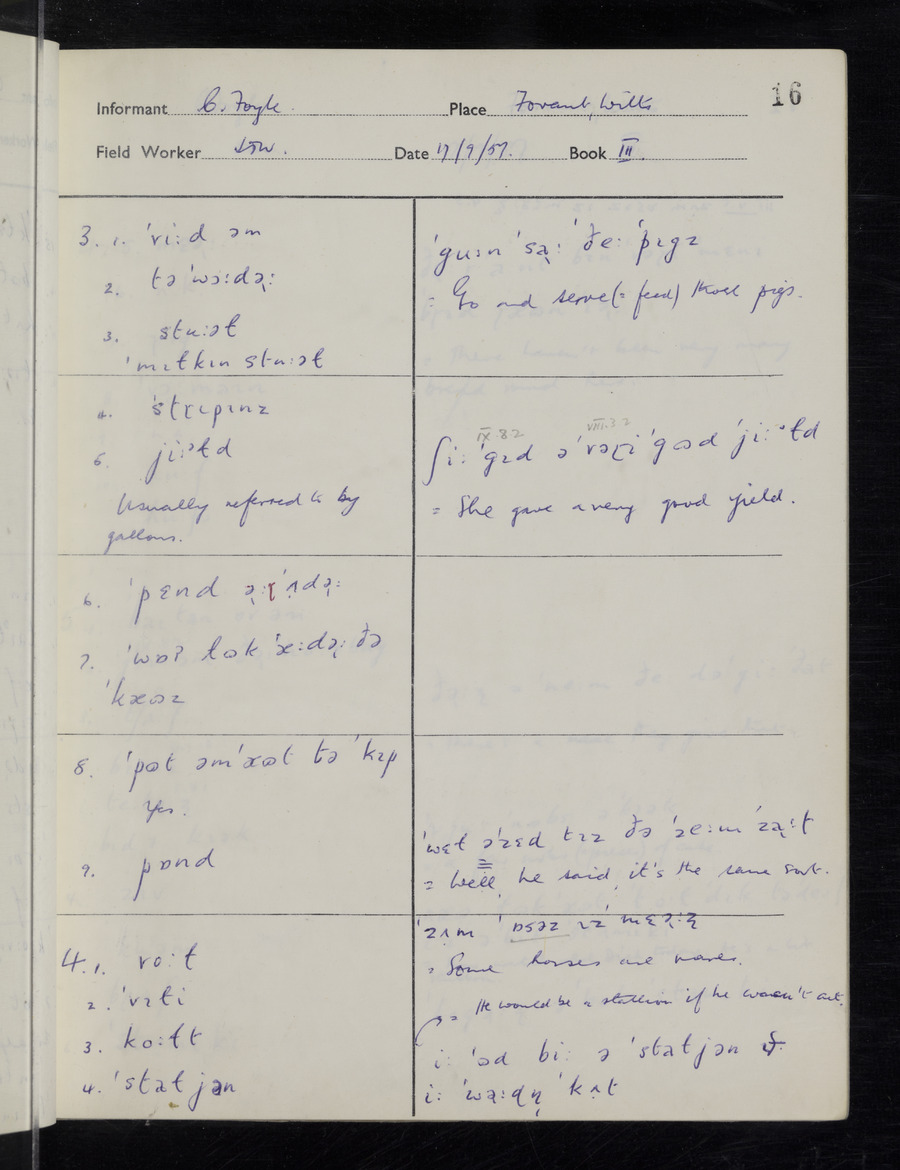 16
Informant C. Foyle Place Fovant, Wilts
Field Worker Date 17/9/57. Book III.
3. 1. ˈvi:d əm
2. tə ˈwɔ:də̢:
3. stu:əɫ
ˈmɪɫkɪn stu:əɫ
ˈgu:n ˈsą: ðe: ˈpɪgz
= Go and serve (= feed) those pigs.
4. ˈstɽɪpɪnz
5. ji:ᵊɫd
Usually referred to by
gallons.
IX.8.2 VIII.3.2
ʃi: ˈgɪd ə ˈvəɽi ˈgɔd ˈji:ᵊɫd
= She gave a very good yield.
6. ˈpɛnd ə̢:ɽ ˈʌdə̢:
7. ˈwɒʔ lɔk ˈæ:də̢: ðə
ˈkæɔz
8. ˈpɔt əm ˈxɔt tə ˈkɪp
Yes.
9. pɒnd
ˈwɛɫ əˈzɛd tɪz ðə ˈze:m ˈzą:t
= Well, he said, it's the same sort.
4. 1. vo:ɫ
2. ˈvɪɫi
3. ko:ɫt
4. ˈstaɫjən
ˈzʌm ˈɒsəz ɪz
= Some horses are mares.
= He would be a stallion if he wasn't cut.
i: ˈəd bi: ə ˈstaɫjən
i: ˈwə:dn̩ ˈkʌt